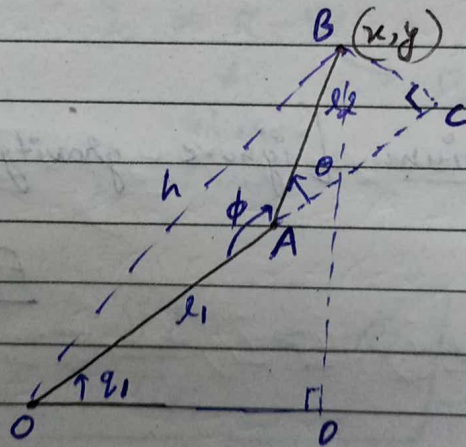 B (x,y)
l2
C
h
θ
φ
A
l1
q1
O
D